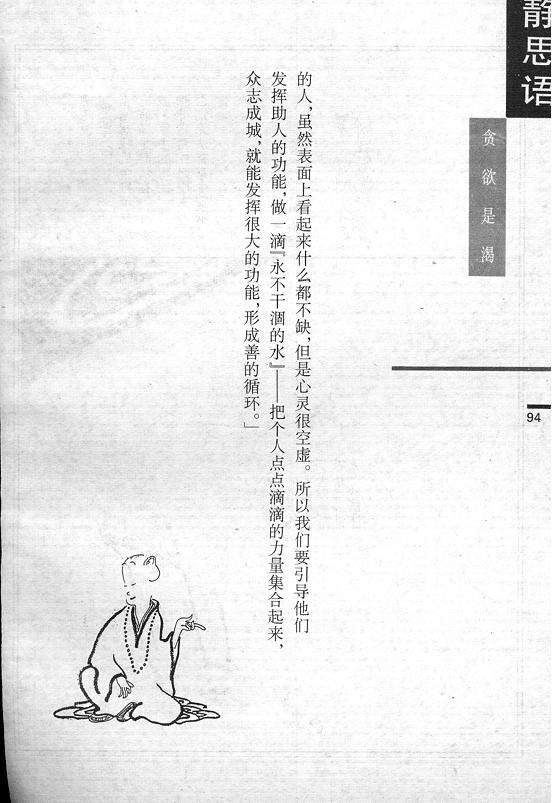 静思语
贪欲是渴
94
的人，虽然表面上看起来什么都不缺，但是心灵很空虚。所以我们要引导他们
发挥助人的功能，做一滴『永不干涸的水』——把个人点点滴滴的力量集合起来，
众志成城，就能发挥很大的功能，形成善的循环。」